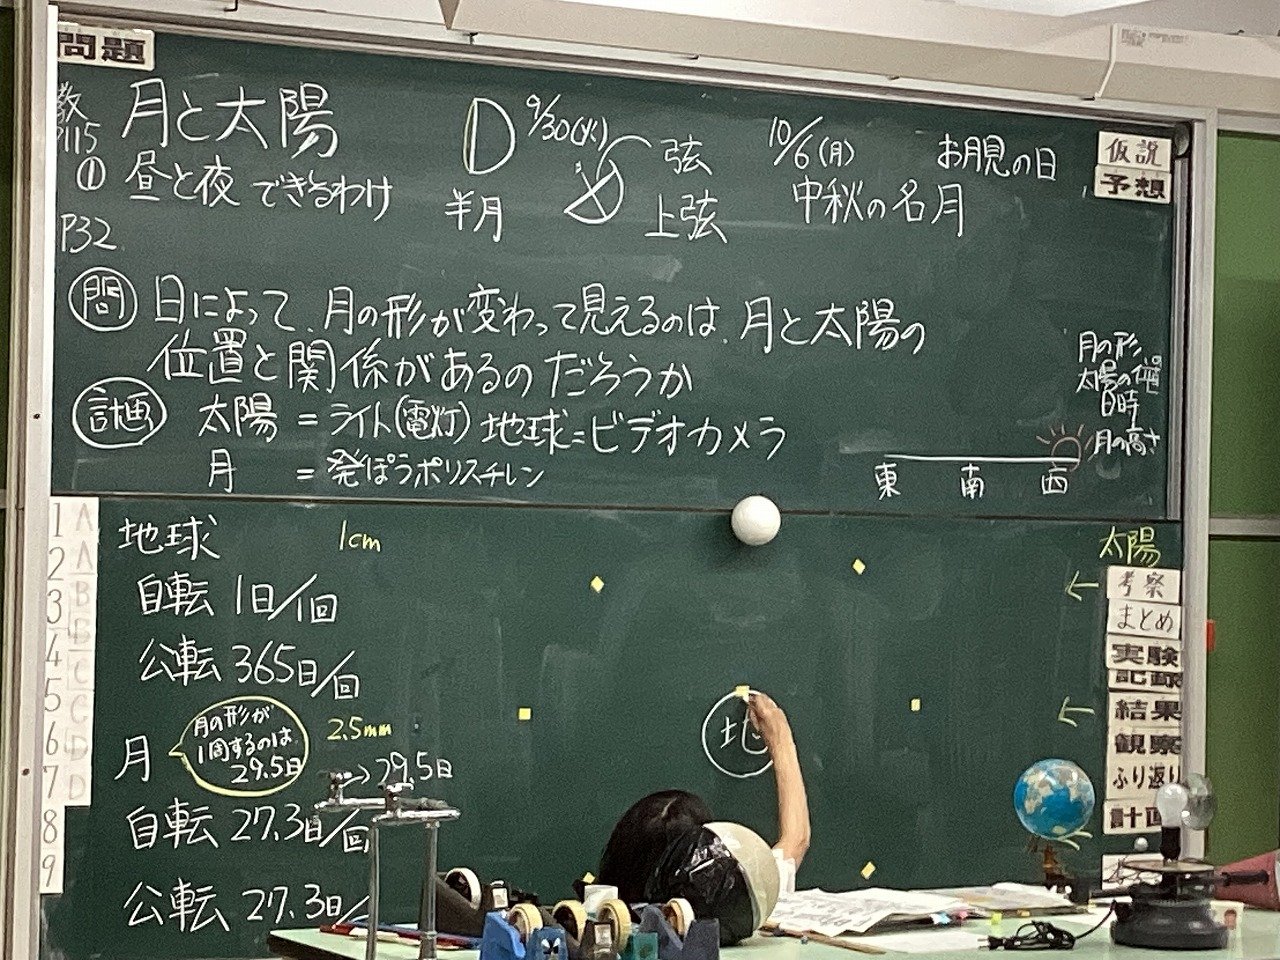 問題
教 月と太陽
P115
① 昼と夜 できるわけ
半月
9/30(火)
弦
上弦
10/6(月) お月見の日
中秋の名月
仮説
予想
P32
問 日によって、月の形が変わって見えるのは、月と太陽の
位置と関係があるのだろうか
計画 太陽 = ライト(電灯) 地球=ビデオカメラ
月 = 発ぽうポリスチレン
月の形
太陽の位置
日時
月の高さ
東 南 西
1 A
2 A
3 B
4 B
5 C
6 C
7 D
8 D
9
地球 1cm
自転 1日/1回
公転 365日/回
月
月の形が
1周するのは
29.5日
2.5mm
→29.5日
自転 27.3日/回
公転 27.3日/
地
太陽
←
考察
まとめ
実験
記録
結果
←
観察
ふり返り
計画